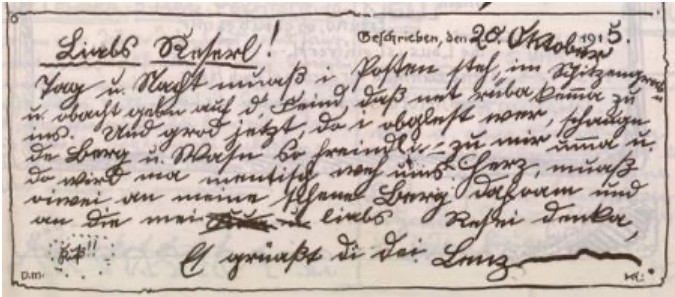 Geschrieben, den 20. Oktober 1915.
Liabs Reserl!
Tag u. Nacht muaß i Posten steh, im Schitzengrab'n
u. obacht gebn auf d' Feind, daß net rüba kemma zu
ins. Und grod jetzt, do i obglest wer, schaugn
de Berg u. Wasn so freindli - zu mir umma u.
do wird ma mentisch weh ums Herz, muaß
oiwei an meine schene Berg dahoam und
an die mei liabs Resei denka,
Es grüaßt di dei Lenz
D.m.